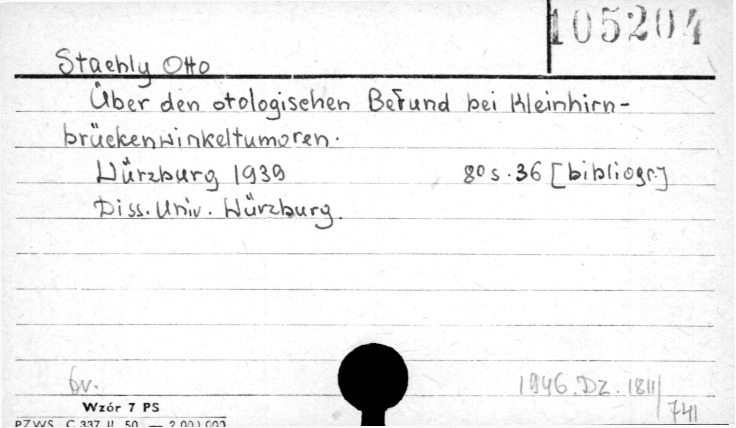 105204
Staehly Otto
Über den otologischen Befund bei Kleinhirn-
brückenwinkeltumoren.
Würzburg 1939 8° s. 36 [bibliogr.]
Diss. Univ. Würzburg.
bv. 1946. Dz. 1811/741
Wzór 7 PS
PZWS C 337 II 50 — 2 000 000